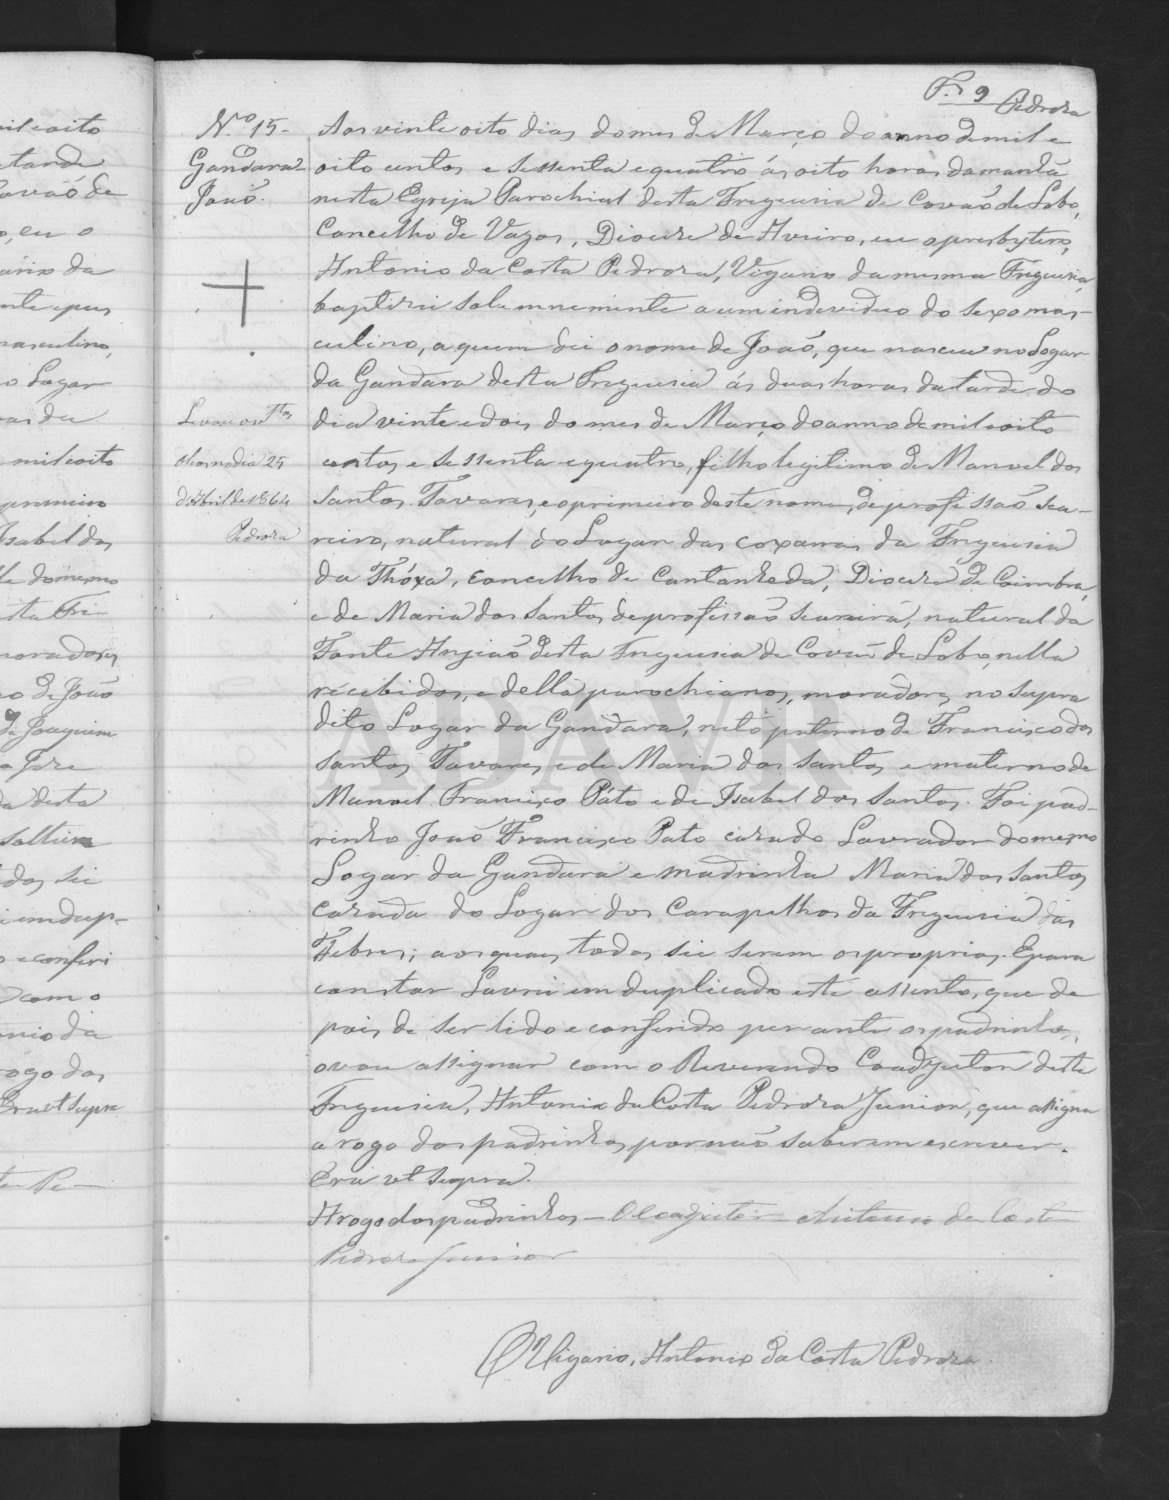 Fs 9 Pedroza
N.º 15-
Gandara
João.
Levou os Stos
oleos no dia 25
d'Abril de 1864
Pedroza
Aos vinte oito dias do mes de Março do anno de mil e
oito centos e sessenta e quatro ás oito horas da manhã
nesta Egreja Parochial desta Freguesia de Covão de Lobo,
Concelho de Vagos, Diocese de Aveiro, eu o presbytero,
Antonio da Costa Pedroza, Vigario da mesma Freguesia,
baptizei solemnemente a um individuo do sexo mas-
culino, a quem dei o nome de João, que nasceu no Logar
da Gandara desta Freguesia ás duas horas da tarde do
dia vinte e dois do mes de Março do anno de mil oito
centos e sessenta e quatro, filho legitimo de Manoel dos
Santos Tavares, e o primeiro deste nome, de profissão sea-
reiro, natural do Lugar das Coxarras da Freguesia
da Thóxa, Concelho de Cantanheda, Diocese de Coimbra,
e de Maria dos Santos de profissão seareira, natural da
Fonte Anjião desta Freguesia de Covão de Lobo, nella
recebidos, e della parochianos, moradores no supra
dito Logar da Gandara, neto paterno de Francisco dos
Santos Tavares e de Maria dos Santos e materno de
Manoel Francisco Páto e de Isabel dos Santos. Foi pad-
rinho João Francisco Pato cazado Lavrador do mesmo
Logar da Gandara e madrinha Maria dos Santos
cazada do Logar dos Carapelhos da Freguesia das
Febres; aos quaes todos sei serem os proprios. E para
constar Lavrei em duplicado este assento, que de
pois de ser lido e conferido perante os padrinhos,
o vou assignar com o Reverendo Coadjutor desta
Freguesia, Antonio da Costa Pedroza Junior, que assigna
a rogo dos padrinhos por não saberem escrever.
Era ut supra.
A rogo dos padrinhos - O Coadjutor Antonio da Costa
Pedroza Junior
O Vigario, Antonio da Costa Pedroza
ADAVR